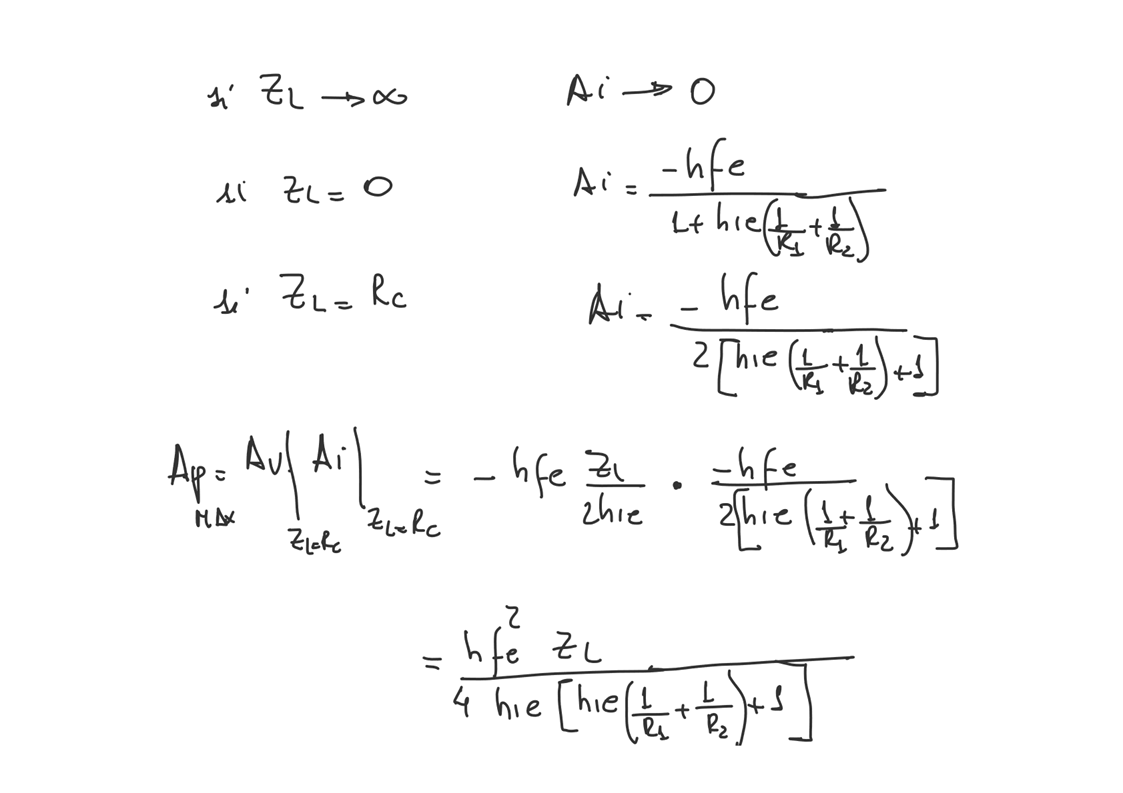 si Z_L → ∞ Ai → 0
si Z_L = 0 Ai = -hfe / (1 + hie(1/R1 + 1/R2))
si Z_L = Rc Ai = -hfe / (2[hie(1/R1 + 1/R2) + 1])
Ap_MAX = Av|_{Z_L=Rc} Ai|_{Z_L=Rc} = -hfe Z_L/(2hie) · -hfe / (2[hie(1/R1 + 1/R2) + 1])
= hfe² Z_L / (4 hie [hie(1/R1 + 1/R2) + 1])